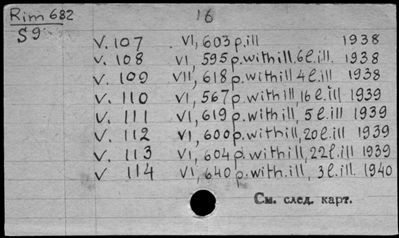 Rim 682 16
S9
V. 107 VI, 603 p. ill 1938
V. 108 VI, 595 p. with ill. 6 l. ill. 1938
V. 109 VII, 618 p. with ill 4 l. ill. 1938
V. 110 VI, 567 p. with ill, 16 l. ill 1939
V. 111 VI, 619 p. with ill, 5 l. ill 1939
V. 112 VI, 600 p. with ill, 20 l. ill 1939
V. 113 VI, 604 p. with ill, 22 l. ill 1939
V. 114 VI, 640 p. with. ill, 3 l. ill. 1940
См. след. карт.